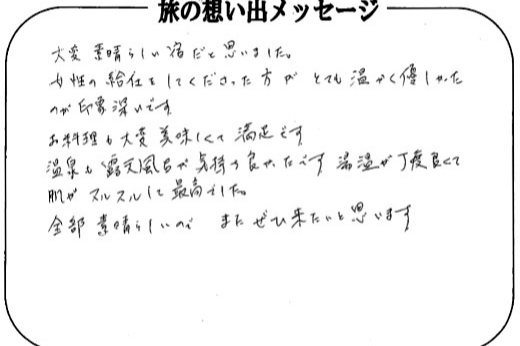 旅の想い出メッセージ
大変 素晴らしい宿だと思いました。
女性の給仕をしてくださった方が とても温かく優しかった
のが印象深いです
お料理も大変美味しくて 満足です
温泉も 露天風呂が気持ち良かったです 湯温が丁度良くて
肌が スルスルして 最高でした。
全部 素晴らしいので また ぜひ来たいと思います